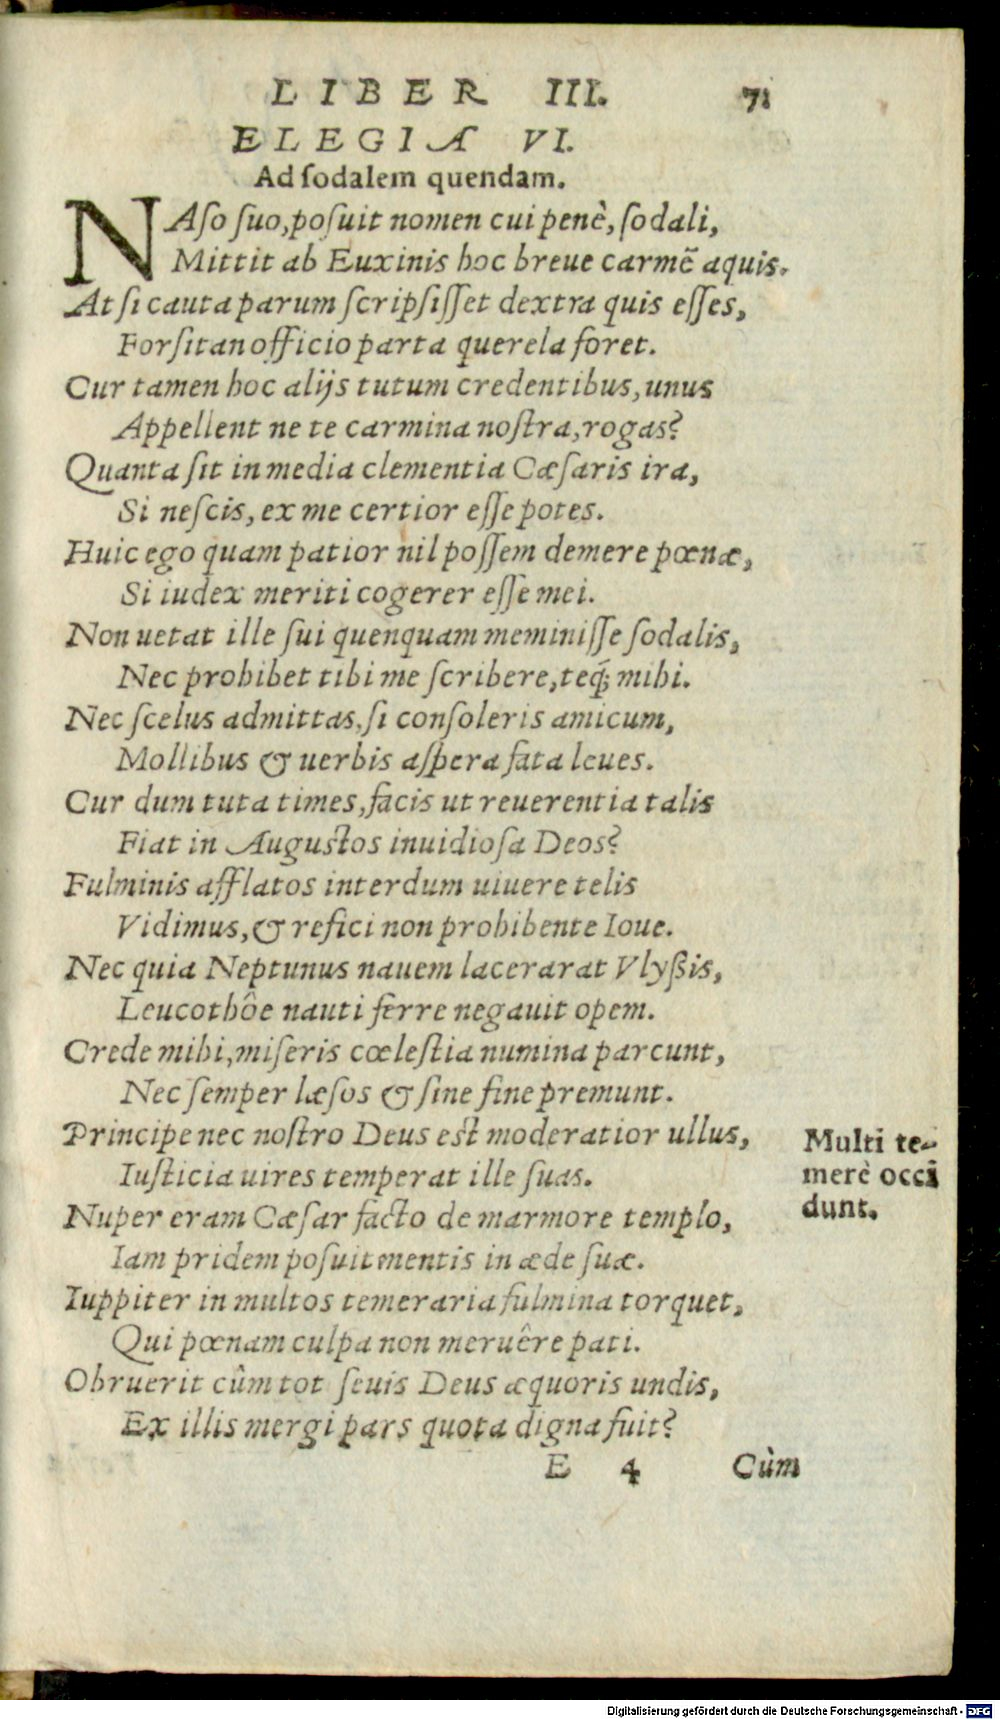 LIBER III. 71
ELEGIA VI.
Ad ſodalem quendam.
NAſo ſuo, poſuit nomen cui penè, ſodali,
Mittit ab Euxinis hoc breue carmẽ aquis.
At ſi cauta parum ſcripſiſſet dextra quis eſſes,
Forſitan officio parta querela foret.
Cur tamen hoc alijs tutum credentibus, unus
Appellent ne te carmina noſtra, rogas?
Quanta ſit in media clementia Cæſaris ira,
Si neſcis, ex me certior eſſe potes.
Huic ego quam patior nil poſſem demere pœnæ,
Si iudex meriti cogerer eſſe mei.
Non uetat ille ſui quenquam meminiſſe ſodalis,
Nec prohibet tibi me ſcribere, teq́; mihi.
Nec ſcelus admittas, ſi conſoleris amicum,
Mollibus & uerbis aſpera fata leues.
Cur dum tuta times, facis ut reuerentia talis
Fiat in Auguſtos inuidioſa Deos?
Fulminis afflatos interdum uiuere telis
Vidimus, & refici non prohibente Ioue.
Nec quia Neptunus nauem lacerarat Vlyßis,
Leucothôe nauti ferre negauit opem.
Crede mihi, miſeris cœleſtia numina parcunt,
Nec ſemper læſos & ſine fine premunt.
Principe nec noſtro Deus eſt moderatior ullus,
Iuſticia uires temperat ille ſuas.
Nuper eram Cæſar facto de marmore templo,
Iam pridem poſuit mentis in æde ſuæ.
Iuppiter in multos temeraria fulmina torquet,
Qui pœnam culpa non meruêre pati.
Obruerit cûm tot ſeuis Deus æquoris undis,
Ex illis mergi pars quota digna fuit?
Multi te-
merè occĩ
dunt.
E 4 Cùm
Digitalisierung gefördert durch die Deutsche Forschungsgemeinschaft - DFG